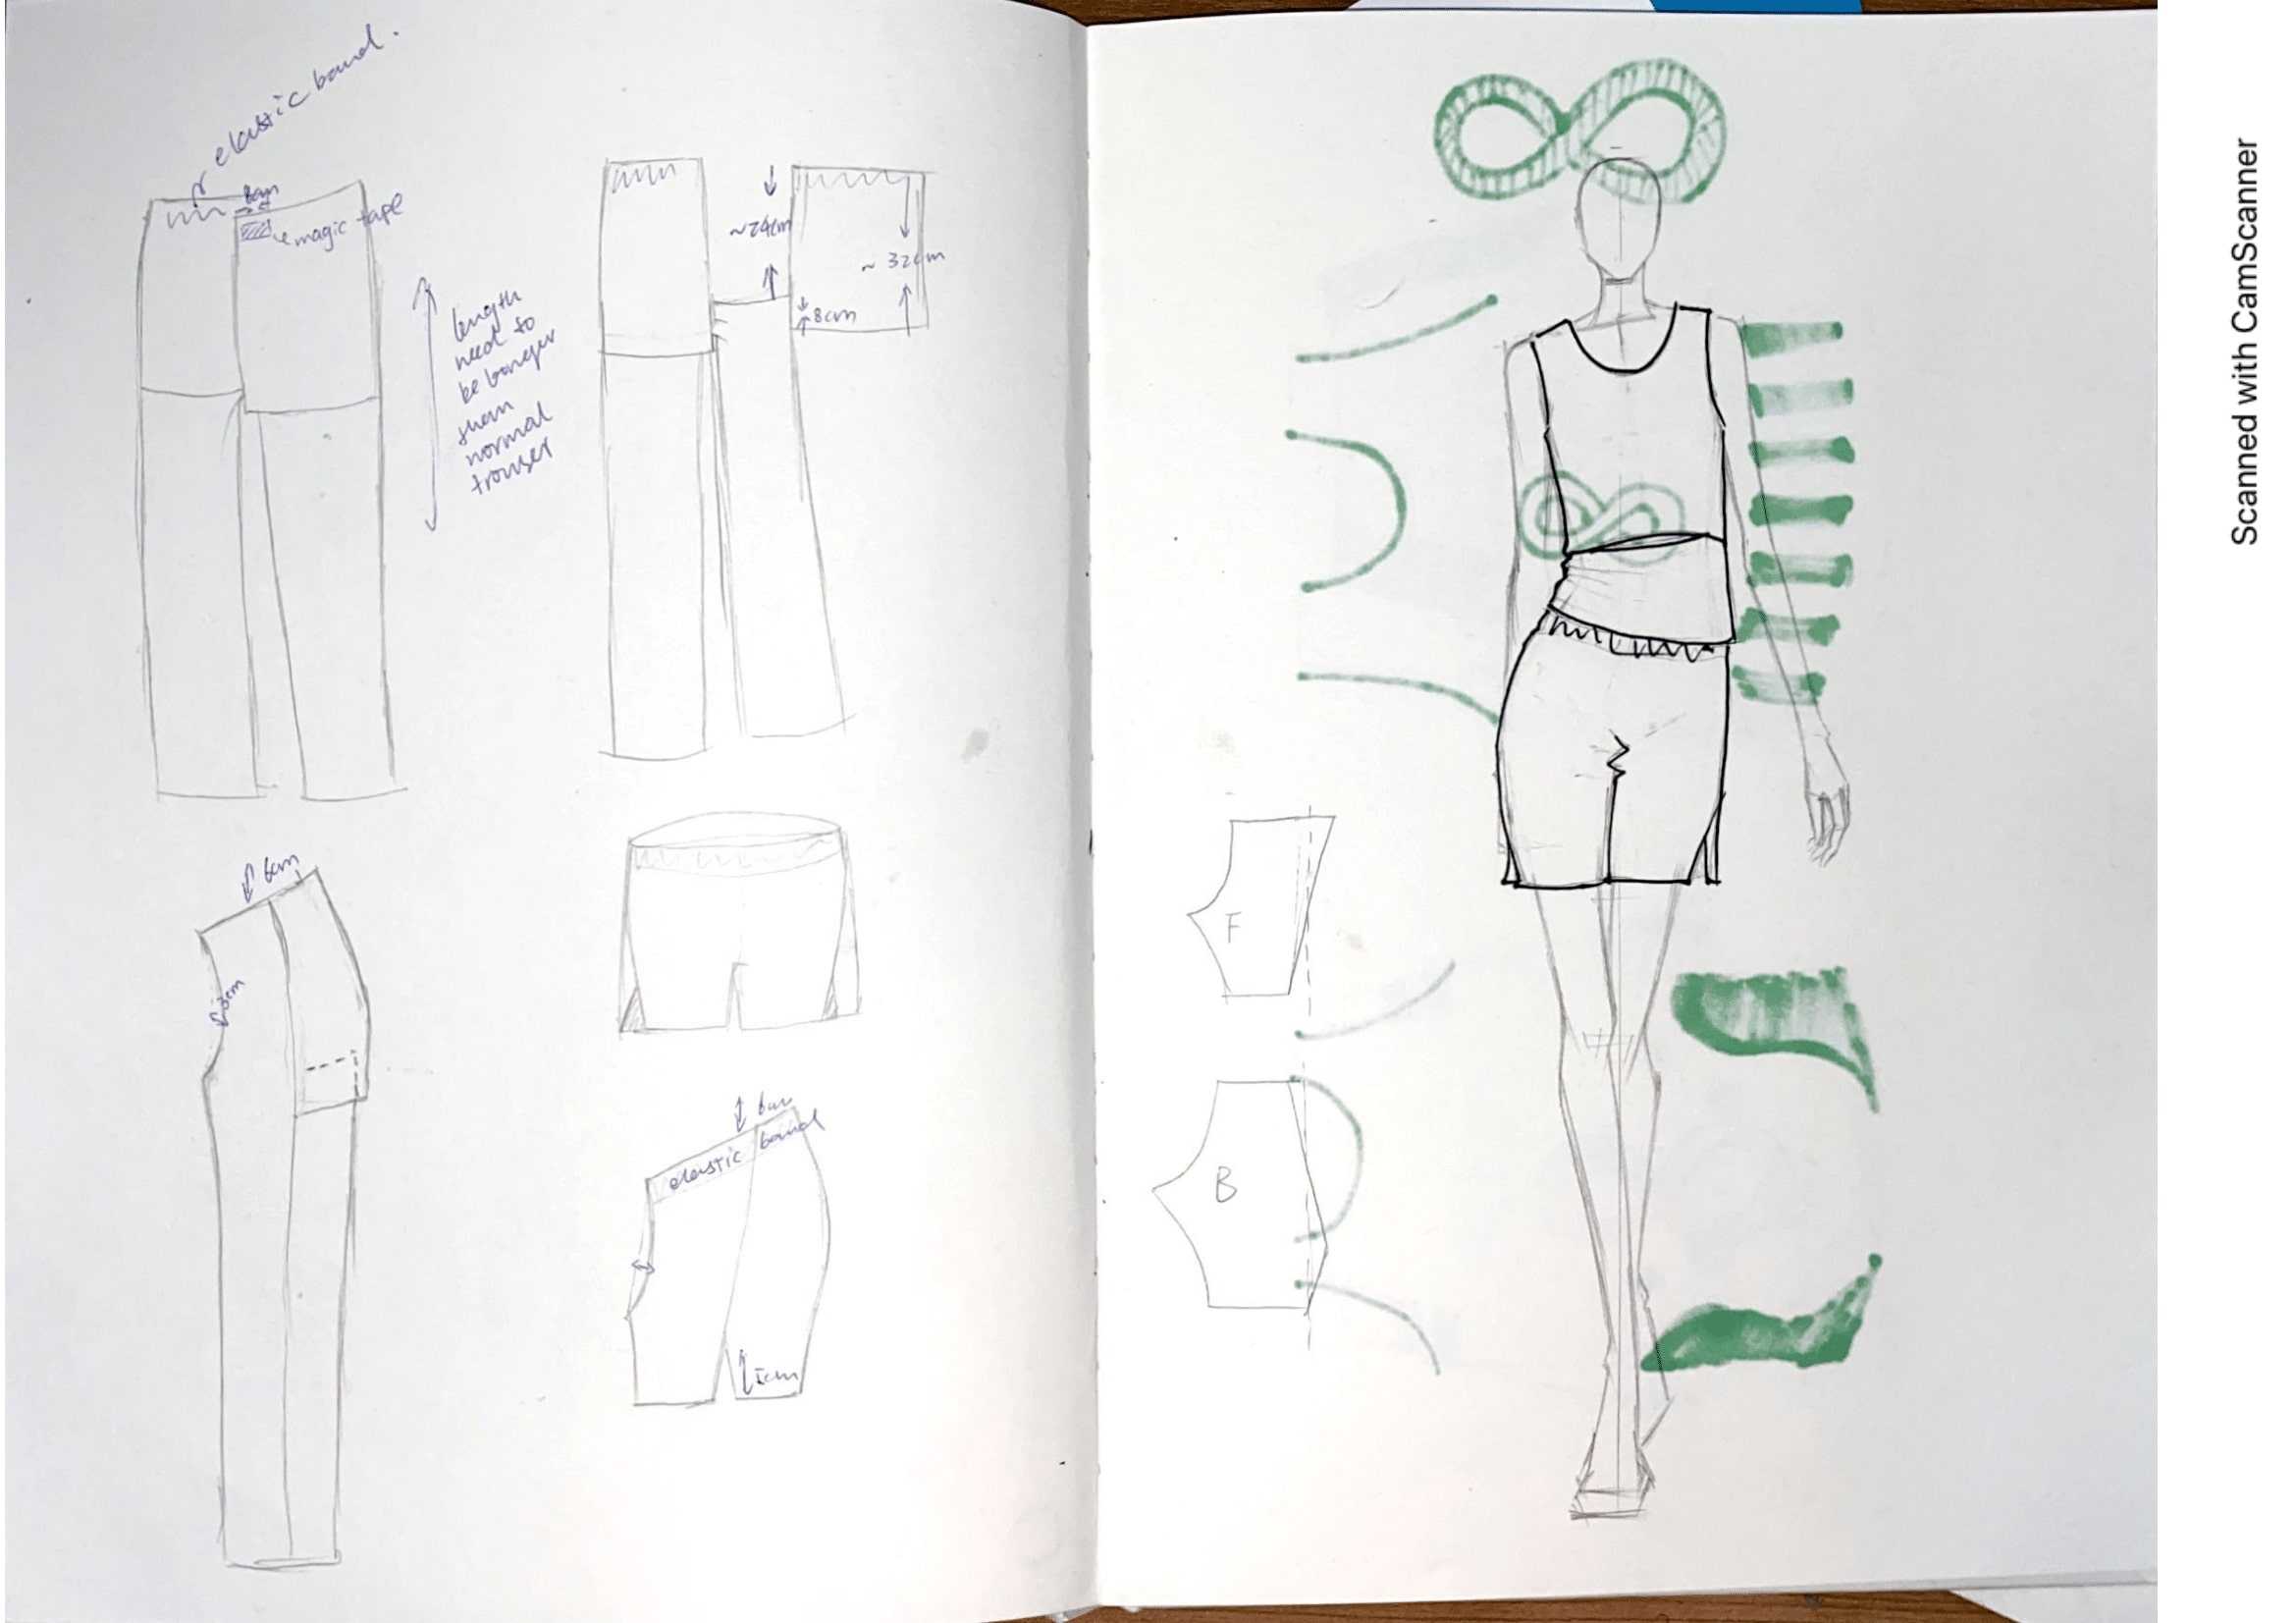 elastic band.
8cm
magic tape
length
need to
be longer
than
normal
trouser
~24cm
~ 32cm
8cm
6cm
3cm
6cm
elastic band
5cm
F
B
Scanned with CamScanner